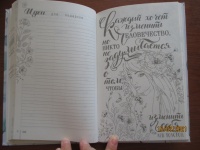 Идеи для
Каждый хочет
изменить
человечество,
но никто
не задумывается
о том,
чтобы
изменить